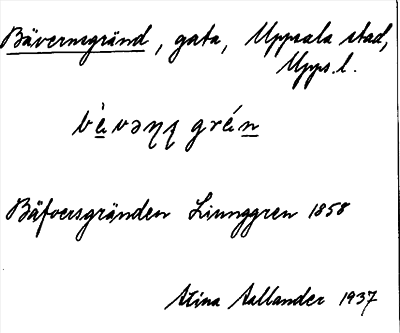 Bävernsgränd, gata, Uppsala stad,
Upps. l.
bèvəɳʂ grén
Bäfversgränden Ljunggren 1858
Stina Aallander 1937